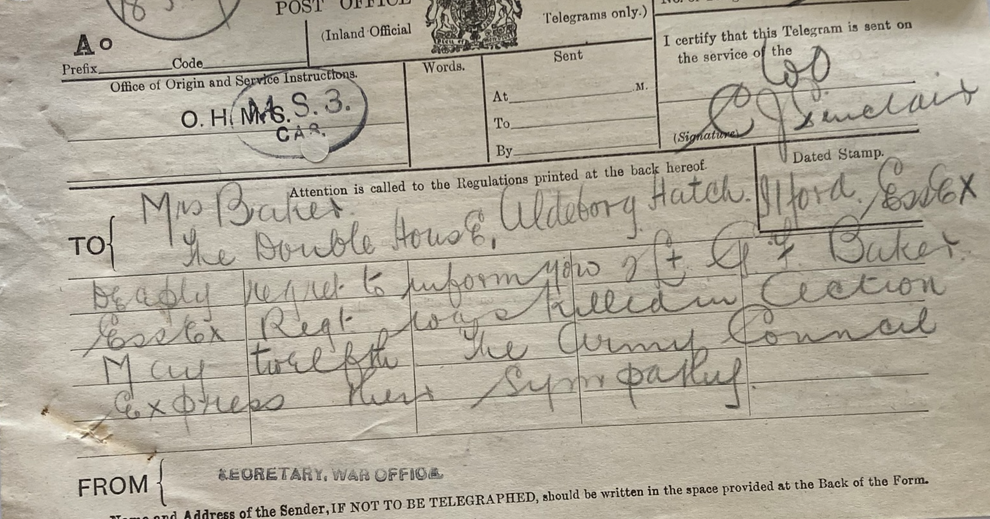 POST OFFICE
(Inland Official Telegrams only.)
A o
Prefix Code
Office of Origin and Service Instructions.
O.H.M.S.
M.S.3.
CAS.
Words.
Sent
At M.
To
By
I certify that this Telegram is sent on
the service of the
(Signature) C J Sinclair
Attention is called to the Regulations printed at the back hereof.
Dated Stamp.
TO
Mrs Baker.
The Double House, Aldeborg Hatch. Ilford. Essex
Deeply regret to inform you 2/Lt. G. F. Baker.
Essex Regt was killed in action
May twelfth The Army Council
Express their sympathy.
FROM
SECRETARY, WAR OFFICE.
Name and Address of the Sender, IF NOT TO BE TELEGRAPHED, should be written in the space provided at the Back of the Form.